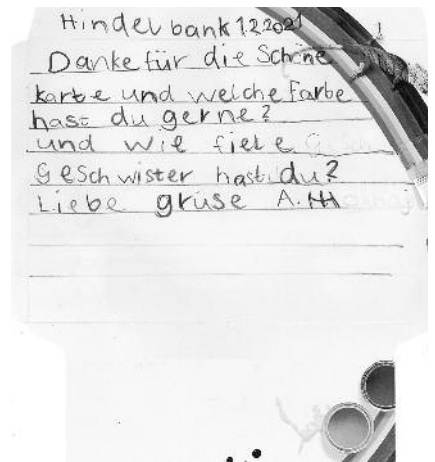 Hindelbank 1.2.2021
Danke für die Schöne
karte und welche Farbe
hast du gerne?
und wie fiele
Geschwister hast du?
Liebe grüse A.